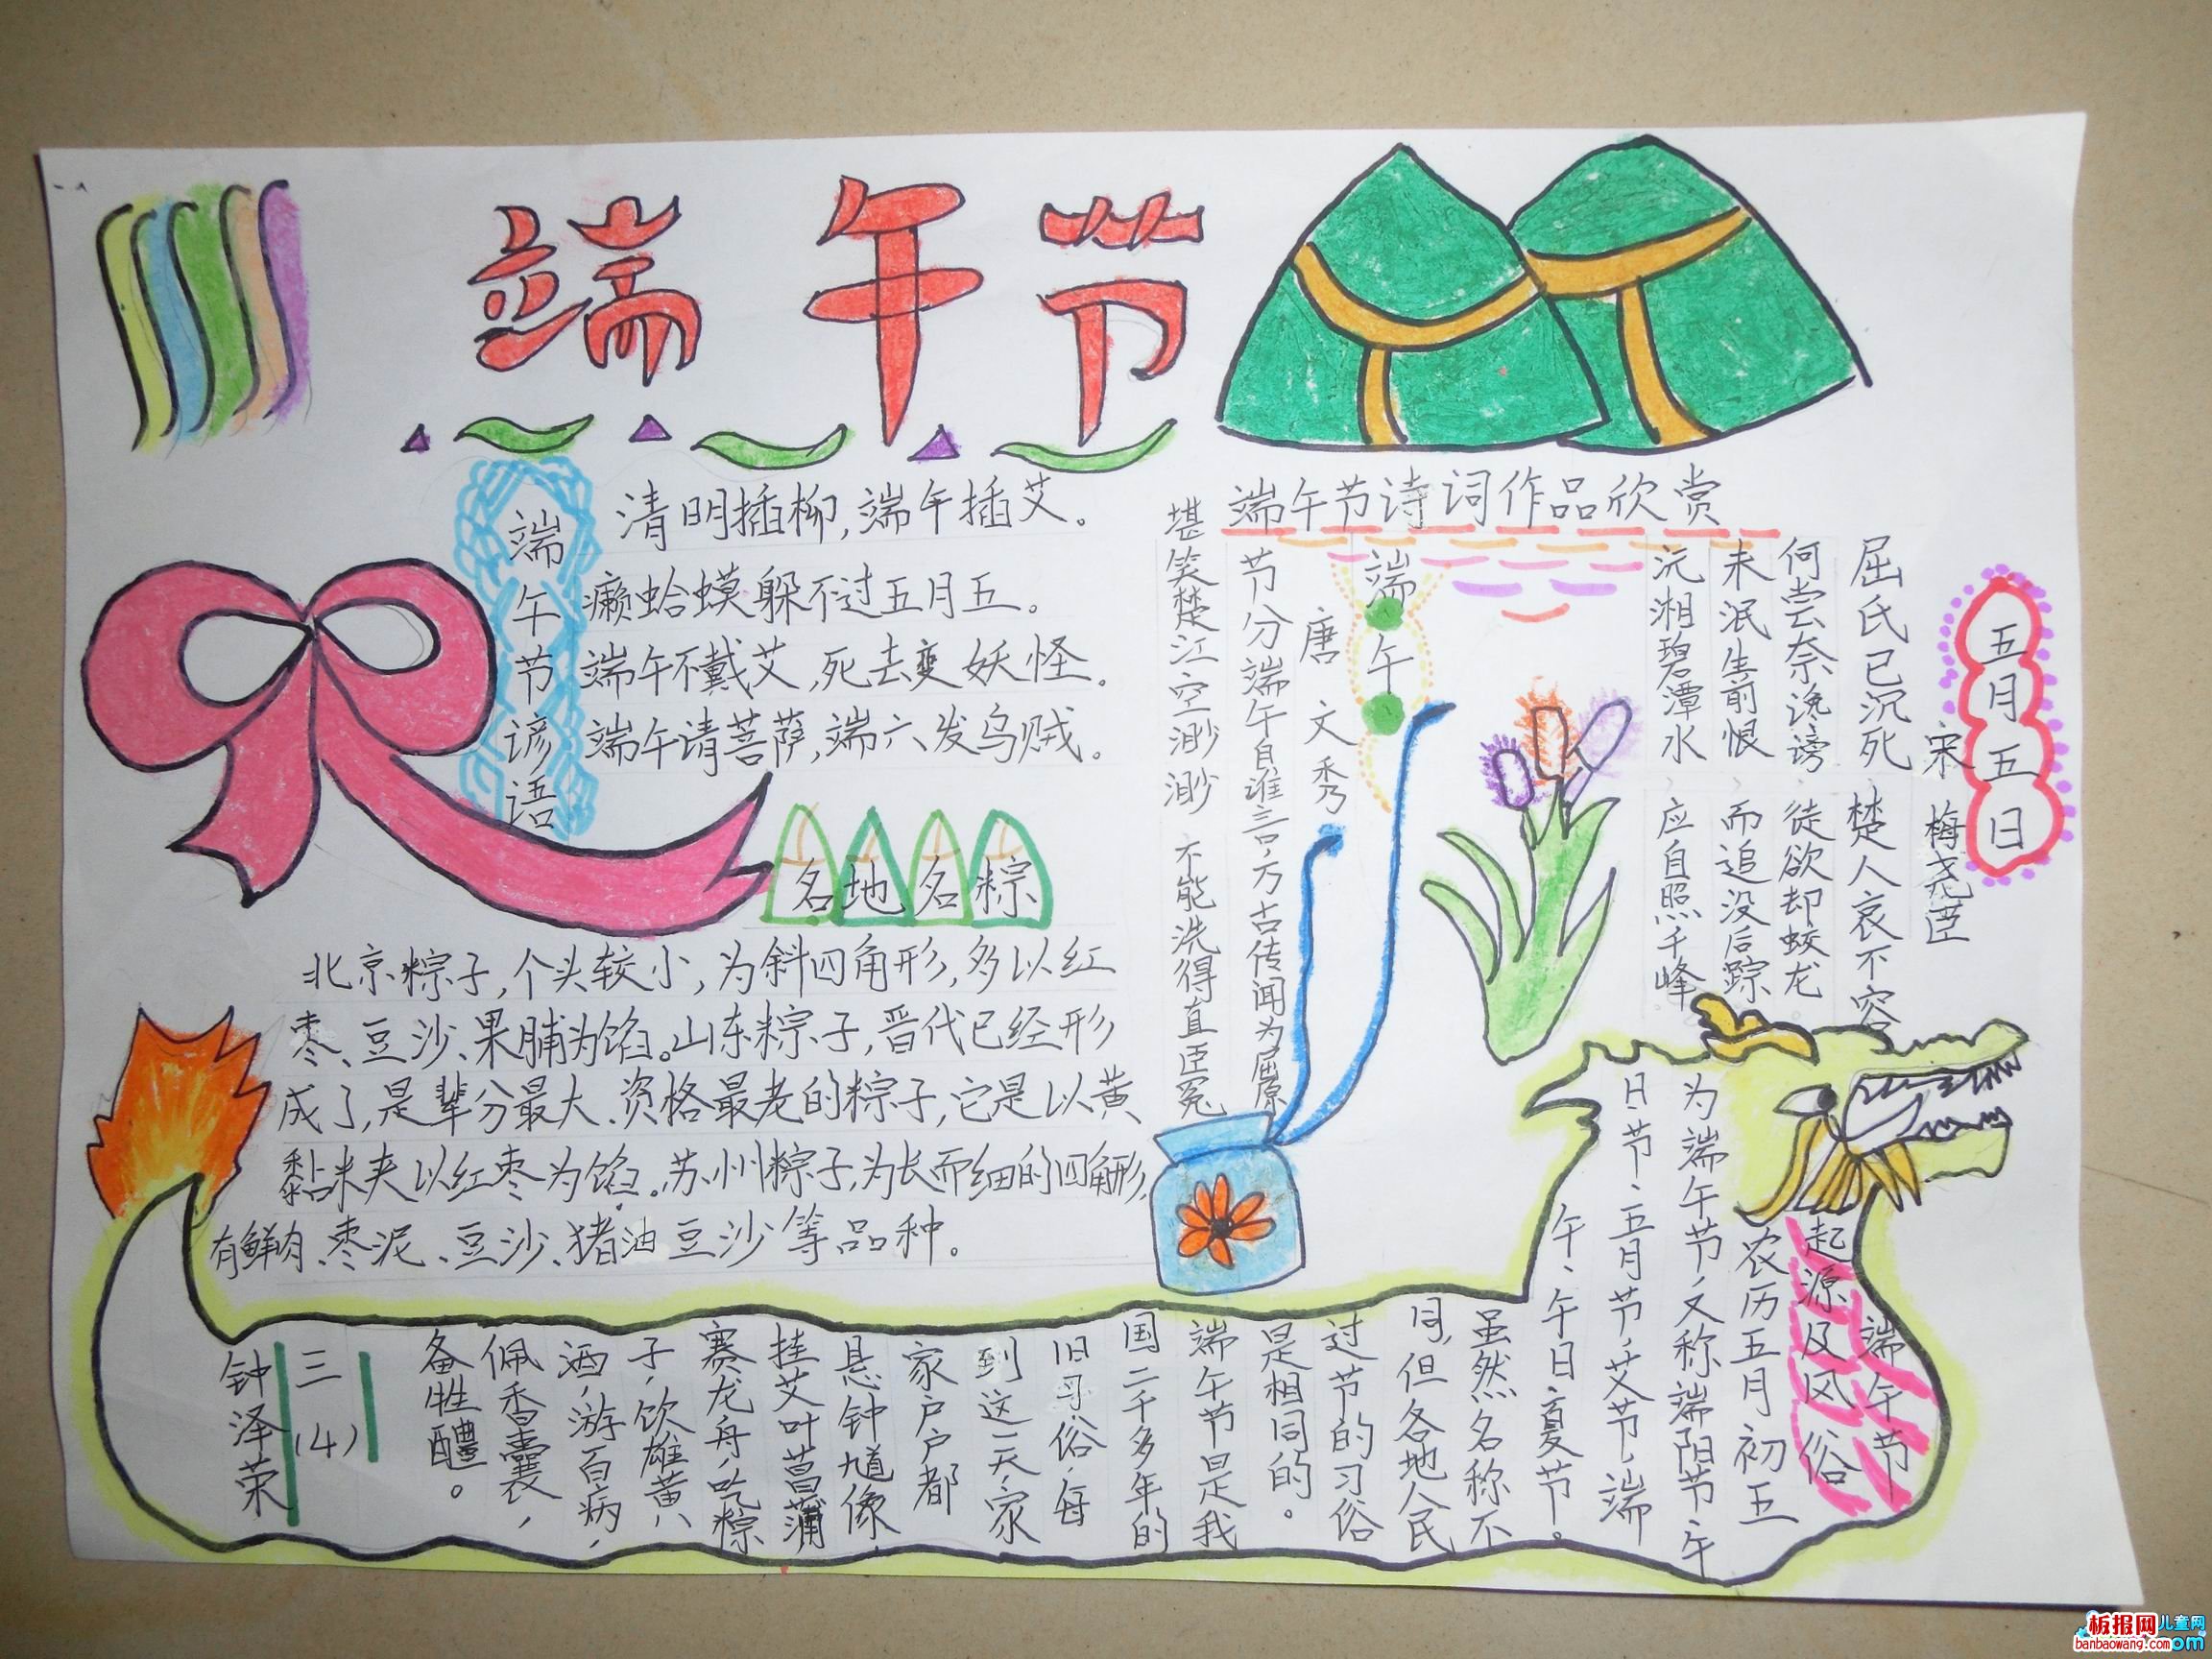 端午节
端午节谚语
清明插柳,端午插艾。
癞蛤蟆躲不过五月五。
端午不戴艾,死去变妖怪。
端午请菩萨,端六发乌贼。
各地名粽
北京粽子,个头较小,为斜四角形,多以红
枣、豆沙、果脯为馅。山东粽子,晋代已经形
成了,是辈分最大、资格最老的粽子,它是以黄
黏米夹以红枣为馅。苏州粽子,为长而细的四角形,
有鲜肉、枣泥、豆沙、猪油豆沙等品种。
端午节诗词作品欣赏
端午
唐 文秀
节分端午自谁言,万古传闻为屈原
堪笑楚江空渺渺 不能洗得直臣冤
五月五日
宋 梅尧臣
屈氏已沉死 楚人哀不容
何尝奈谗谤 徒欲却蛟龙
未泯生前恨 而追没后踪
沅湘碧潭水 应自照千峰
端午节
起源及风俗
农历五月初五
为端午节,又称端阳节、午
日、节、五月节,艾节、端
午、午日、夏节。
虽然名称不
同,但各地人民
过节的习俗
是相同的。
端午节是我
国二千多年的
旧习俗,每
到这一天,家
家户户都
悬钟馗像,
挂艾叶菖蒲
赛龙舟,吃粽
子,饮雄黄
酒,游百病,
佩香囊,
备牲醴。
三(4)
钟泽荣
板报网儿童网
banbaowang.com